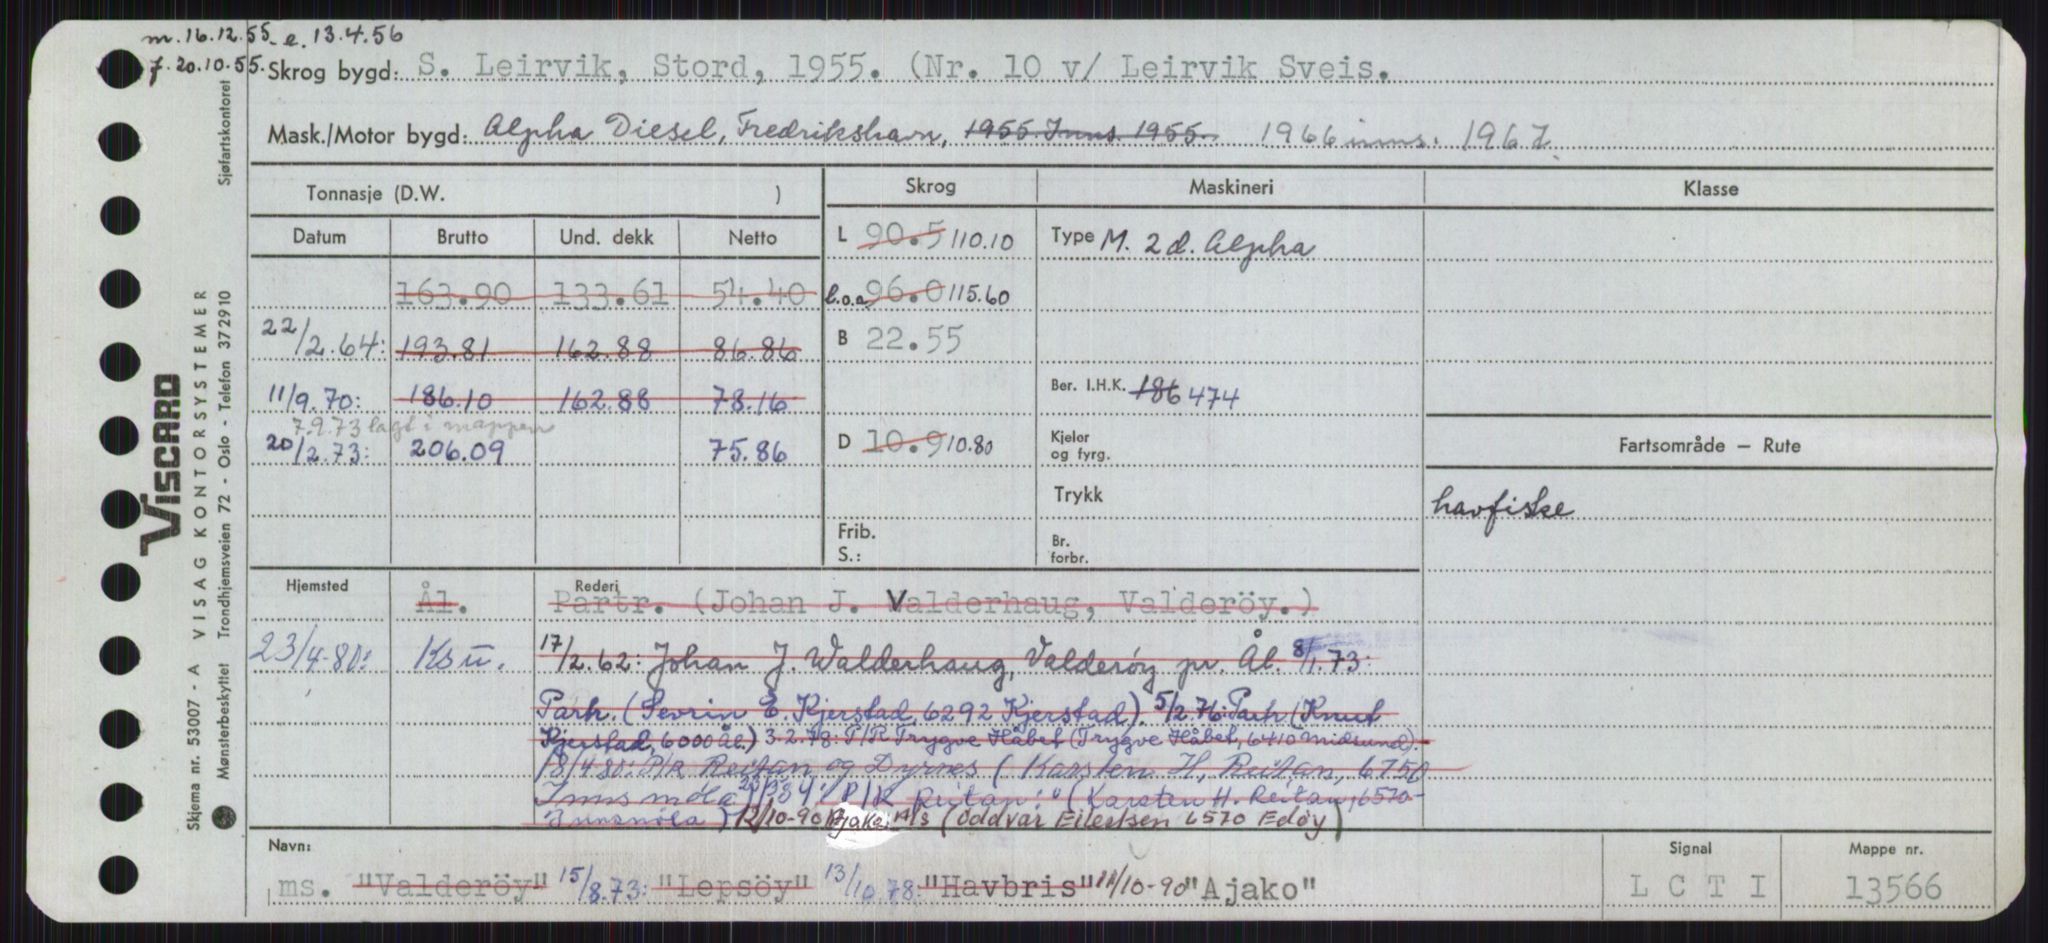 m. 16.12.55. e. 13.4.56
f. 20.10.55. Skrog bygd: S. Leirvik, Stord, 1955. (Nr. 10 v/ Leirvik Sveis.
Mask./Motor bygd: Alpha Diesel, Fredrikshavn, 1955. Inns. 1955. 1966 inns. 1967.
Tonnasje (D.W. )
Skrog
Maskineri
Klasse
Datum Brutto Und. dekk Netto
L 90.5 110.10
Type M. 2 d. Alpha
163.90 133.61 54.40
l.o.a. 96.0 115.60
22/2.64: 193.81 162.88 86.86
B 22.55
11/9.70: 186.10 162.88 78.16
Ber. I.H.K. 186 474
7.9.73 lagt i mappen
20/2.73: 206.09 75.86
D 10.9 10.80
Kjeler
og fyrg.
Fartsområde — Rute
Trykk
havfiske
Frib.
S.:
Br.
forbr.
Hjemsted
Rederi
Ål. Partr. (Johan J. Valderhaug, Valderöy.)
23/4-80: Ksu. 17/2.62: Johan J. Walderhaug, Valderøy pr. Ål. 8/1.73:
Partr. (Sevrin E. Kjerstad, 6292 Kjerstad). 5/2.76: Partr (Knut
Kjerstad, 6000 Ål.) 3.2.78: P/R Trygve Håbet (Trygve Håbet, 6410 Midsund).
18/4 80: P/R Reitan og Dyrnes (Karsten H. Reitan, 6750
Innsmøla. P/R Reitan: " (Karsten H. Reitan, 6570-
Innsmøla) 12/10-90 Ajako A/s (Oddvar Eilertsen 6570 Edøy)
Navn:
Signal
Mappe nr.
ms. "Valderöy" 15/8.73: "Lepsöy" 13/10.78: "Havbris" 12/10-90 "Ajako"
L C T I
13566
VISCARD
Skjema nr. 53007 - A VISAG KONTORSYSTEMER
Mønsterbeskyttet Trondhjemsveien 72 - Oslo - Telefon 372910 Sjøfartskontoret